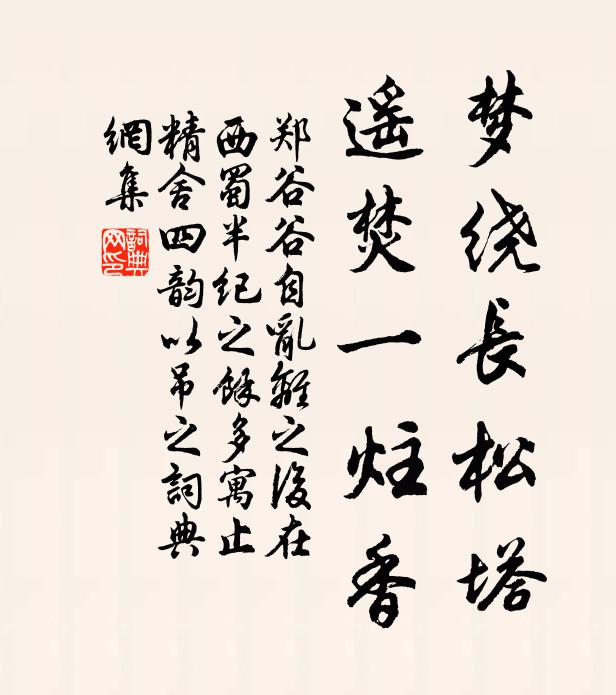 梦绕长松塔
遥焚一炷香
郑谷谷自乱離之後在
西蜀半纪之餘多寓止
精舍四韵以吊之詞典
網集
詞典網印